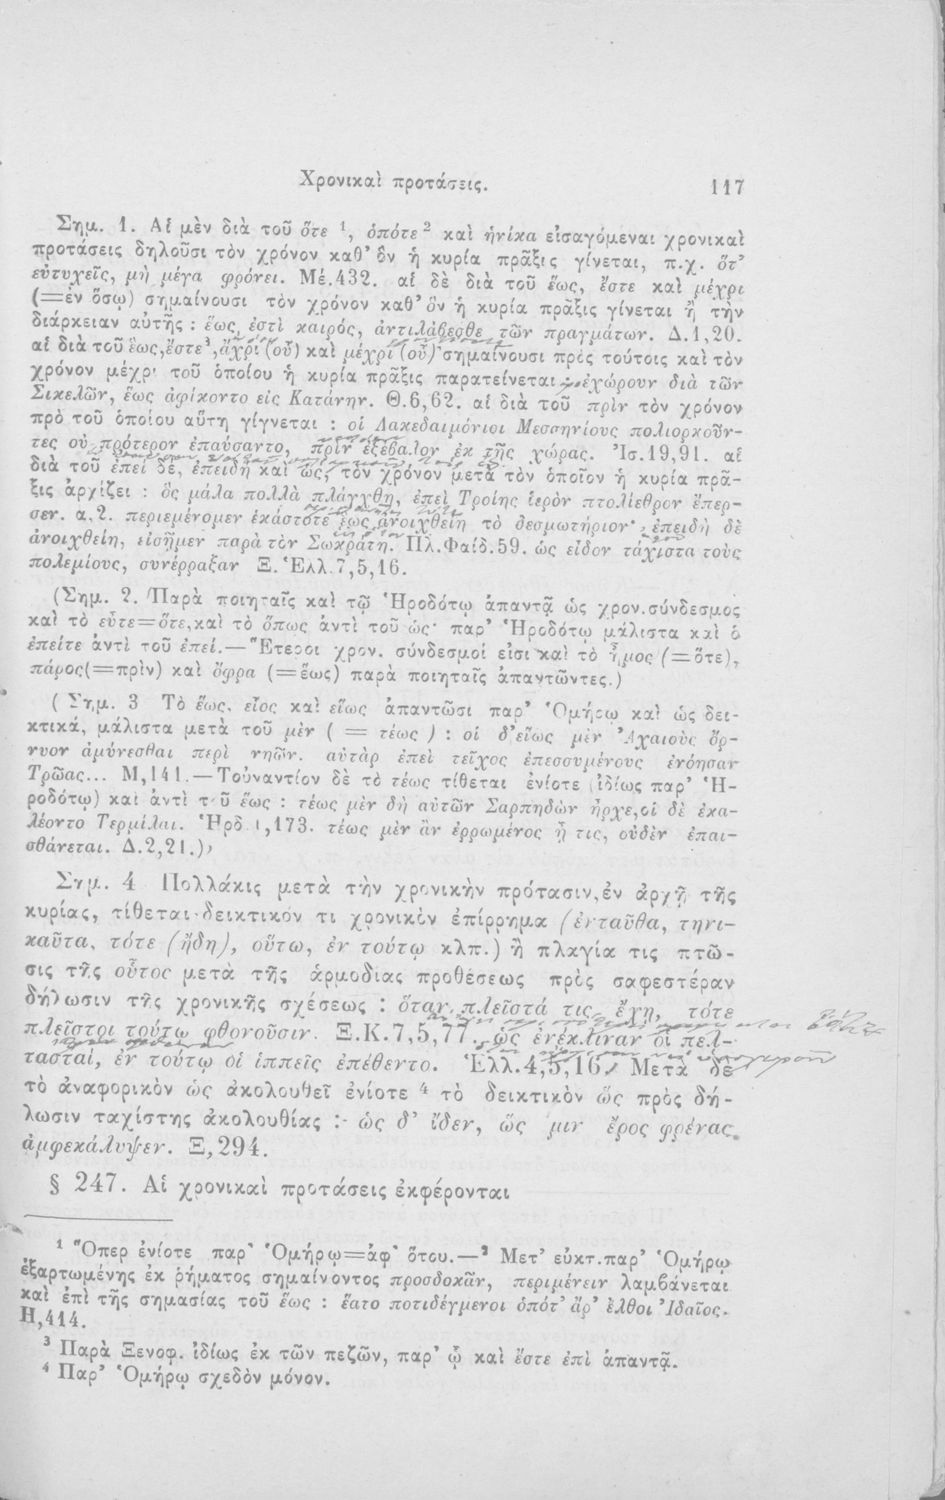 Χρονικαὶ προτάσεις. 117
Σημ. 1. Αἱ μὲν διὰ τοῦ ὅτε ¹, ὁπότε ² καὶ ἡνίκα εἰσαγόμεναι χρονικαὶ
προτάσεις δηλοῦσι τὸν χρόνον καθ’ ὃν ἡ κυρία πρᾶξις γίνεται, π.χ. ὅτ’
εὐτυχεῖς, μὴ μέγα φρόνει. Μέ.432. αἱ δὲ διὰ τοῦ ἕως, ἔστε καὶ μέχρι
(=ἐν ὅσῳ) σημαίνουσι τὸν χρόνον καθ’ ὃν ἡ κυρία πρᾶξις γίνεται ἢ τὴν
διάρκειαν αὐτῆς : ἕως ἐστὶ καιρός, ἀντιλάβεσθε τῶν πραγμάτων. Δ.1,20.
αἱ διὰ τοῦ ἕως, ἔστε³, ἄχρι (οὗ) καὶ μέχρι (οὗ) σημαίνουσι πρὸς τούτοις καὶ τὸν
χρόνον μέχρι τοῦ ὁποίου ἡ κυρία πρᾶξις παρατείνεται : ἐχώρουν διὰ τῶν
Σικελῶν, ἕως ἀφίκοντο εἰς Κατάνην. Θ.6,62. αἱ διὰ τοῦ πρὶν τὸν χρόνον
πρὸ τοῦ ὁποίου αὕτη γίγνεται : οἱ Λακεδαιμόνιοι Μεσσηνίους πολιορκοῦν-
τες οὐ πρότερον ἐπαύσαντο, πρὶν ἐξέβαλον ἐκ τῆς χώρας. Ἰσ.19,91. αἱ
διὰ τοῦ ἐπεὶ δέ, ἐπειδὴ καὶ ὡς, τὸν χρόνον μετὰ τὸν ὁποῖον ἡ κυρία πρᾶ-
ξις ἀρχίζει : ὃς μάλα πολλὰ πλάγχθη, ἐπεὶ Τροίης ἱερὸν πτολίεθρον ἔπερ-
σεν. α,2. περιεμένομεν ἑκάστοτε ἕως ἀνοιχθείη τὸ δεσμωτήριον· ἐπειδὴ δὲ
ἀνοιχθείη, εἰσῇμεν παρὰ τὸν Σωκράτη. Πλ.Φαίδ.59. ὡς εἶδον τάχιστα τοὺς
πολεμίους, συνέρραξαν Ξ. Ἑλλ.7,5,16.
(Σημ. 2. Παρὰ ποιηταῖς καὶ τῷ Ἡροδότῳ ἀπαντᾷ ὡς χρον.σύνδεσμος
καὶ τὸ εὖτε=ὅτε, καὶ τὸ ὅπως ἀντὶ τοῦ ὡς· παρ’ Ἡροδότῳ μάλιστα καὶ ὁ
ἐπείτε ἀντὶ τοῦ ἐπεί.— Ἕτεροι χρον. σύνδεσμοί εἰσι καὶ τὸ ἦμος (=ὅτε),
πάρος(=πρὶν) καὶ ὄφρα (=ἕως) παρὰ ποιηταῖς ἀπαντῶντες.)
( Σημ. 3 Τὸ ἕως, εἷος καὶ εἵως ἀπαντῶσι παρ’ Ὁμήρῳ καὶ ὡς δει-
κτικά, μάλιστα μετὰ τοῦ μὲν ( = τέως ) : οἱ δ’ εἵως μὲν Ἀχαιοὺς ὄρ-
νυον ἀμύνεσθαι περὶ νηῶν. αὐτὰρ ἐπεὶ τεῖχος ἐπεσσυμένους ἐνόησαν
Τρῶας... Μ,141.— Τοὐναντίον δὲ τὸ τέως τίθεται ἐνίοτε (ἰδίως παρ’ Ἡ-
ροδότῳ) καὶ ἀντὶ τοῦ ἕως : τέως μὲν δὴ αὐτῶν Σαρπηδὼν ἦρχε, οἱ δὲ ἐκα-
λέοντο Τερμίλαι. Ἡρδ 1,173. τέως μὲν ἂν ἐρρωμένος ᾖ τις, οὐδὲν ἐπαι-
σθάνεται. Δ.2,21.)
Σημ. 4 Πολλάκις μετὰ τὴν χρονικὴν πρότασιν, ἐν ἀρχῇ τῆς
κυρίας, τίθεται δεικτικόν τι χρονικὸν ἐπίρρημα (ἐνταῦθα, τηνι-
καῦτα, τότε (ἤδη), οὕτω, ἐν τούτῳ κλπ.) ἢ πλαγία τις πτῶ-
σις τῆς οὗτος μετὰ τῆς ἁρμοδίας προθέσεως πρὸς σαφεστέραν
δήλωσιν τῆς χρονικῆς σχέσεως : ὅταν πλεῖστά τις ἔχῃ, τότε
πλεῖστοι τούτῳ φθονοῦσιν. Ξ.Κ.7,5,77. ὡς ἐνέκλιναν οἱ πελ-
τασταί, ἐν τούτῳ οἱ ἱππεῖς ἐπέθεντο. Ἑλλ.4,5,16. Μετὰ δὲ
τὸ ἀναφορικὸν ὡς ἀκολουθεῖ ἐνίοτε ⁴ τὸ δεικτικὸν ὣς πρὸς δή-
λωσιν ταχίστης ἀκολουθίας : ὡς δ’ ἴδεν, ὥς μιν ἔρος φρένας
ἀμφεκάλυψεν. Ξ,294.
§ 247. Αἱ χρονικαὶ προτάσεις ἐκφέρονται
¹ Ὅπερ ἐνίοτε παρ’ Ὁμήρῳ=ἀφ’ ὅτου.—² Μετ’ εὐκτ. παρ’ Ὁμήρῳ
ἐξαρτωμένης ἐκ ῥήματος σημαίνοντος προσδοκᾶν, περιμένειν λαμβάνεται
καὶ ἐπὶ τῆς σημασίας τοῦ ἕως : ἕατο ποτιδέγμενοι ὁπότ’ ἂρ’ ἔλθοι Ἰδαῖος.
Η,414.
³ Παρὰ Ξενοφ. ἰδίως ἐκ τῶν πεζῶν, παρ’ ᾧ καὶ ἔστε ἐπὶ ἀπαντᾷ.
⁴ Παρ’ Ὁμήρῳ σχεδὸν μόνον.